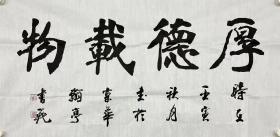 厚德載物
時在
壬寅
秋月
於
京華
翰亭
書